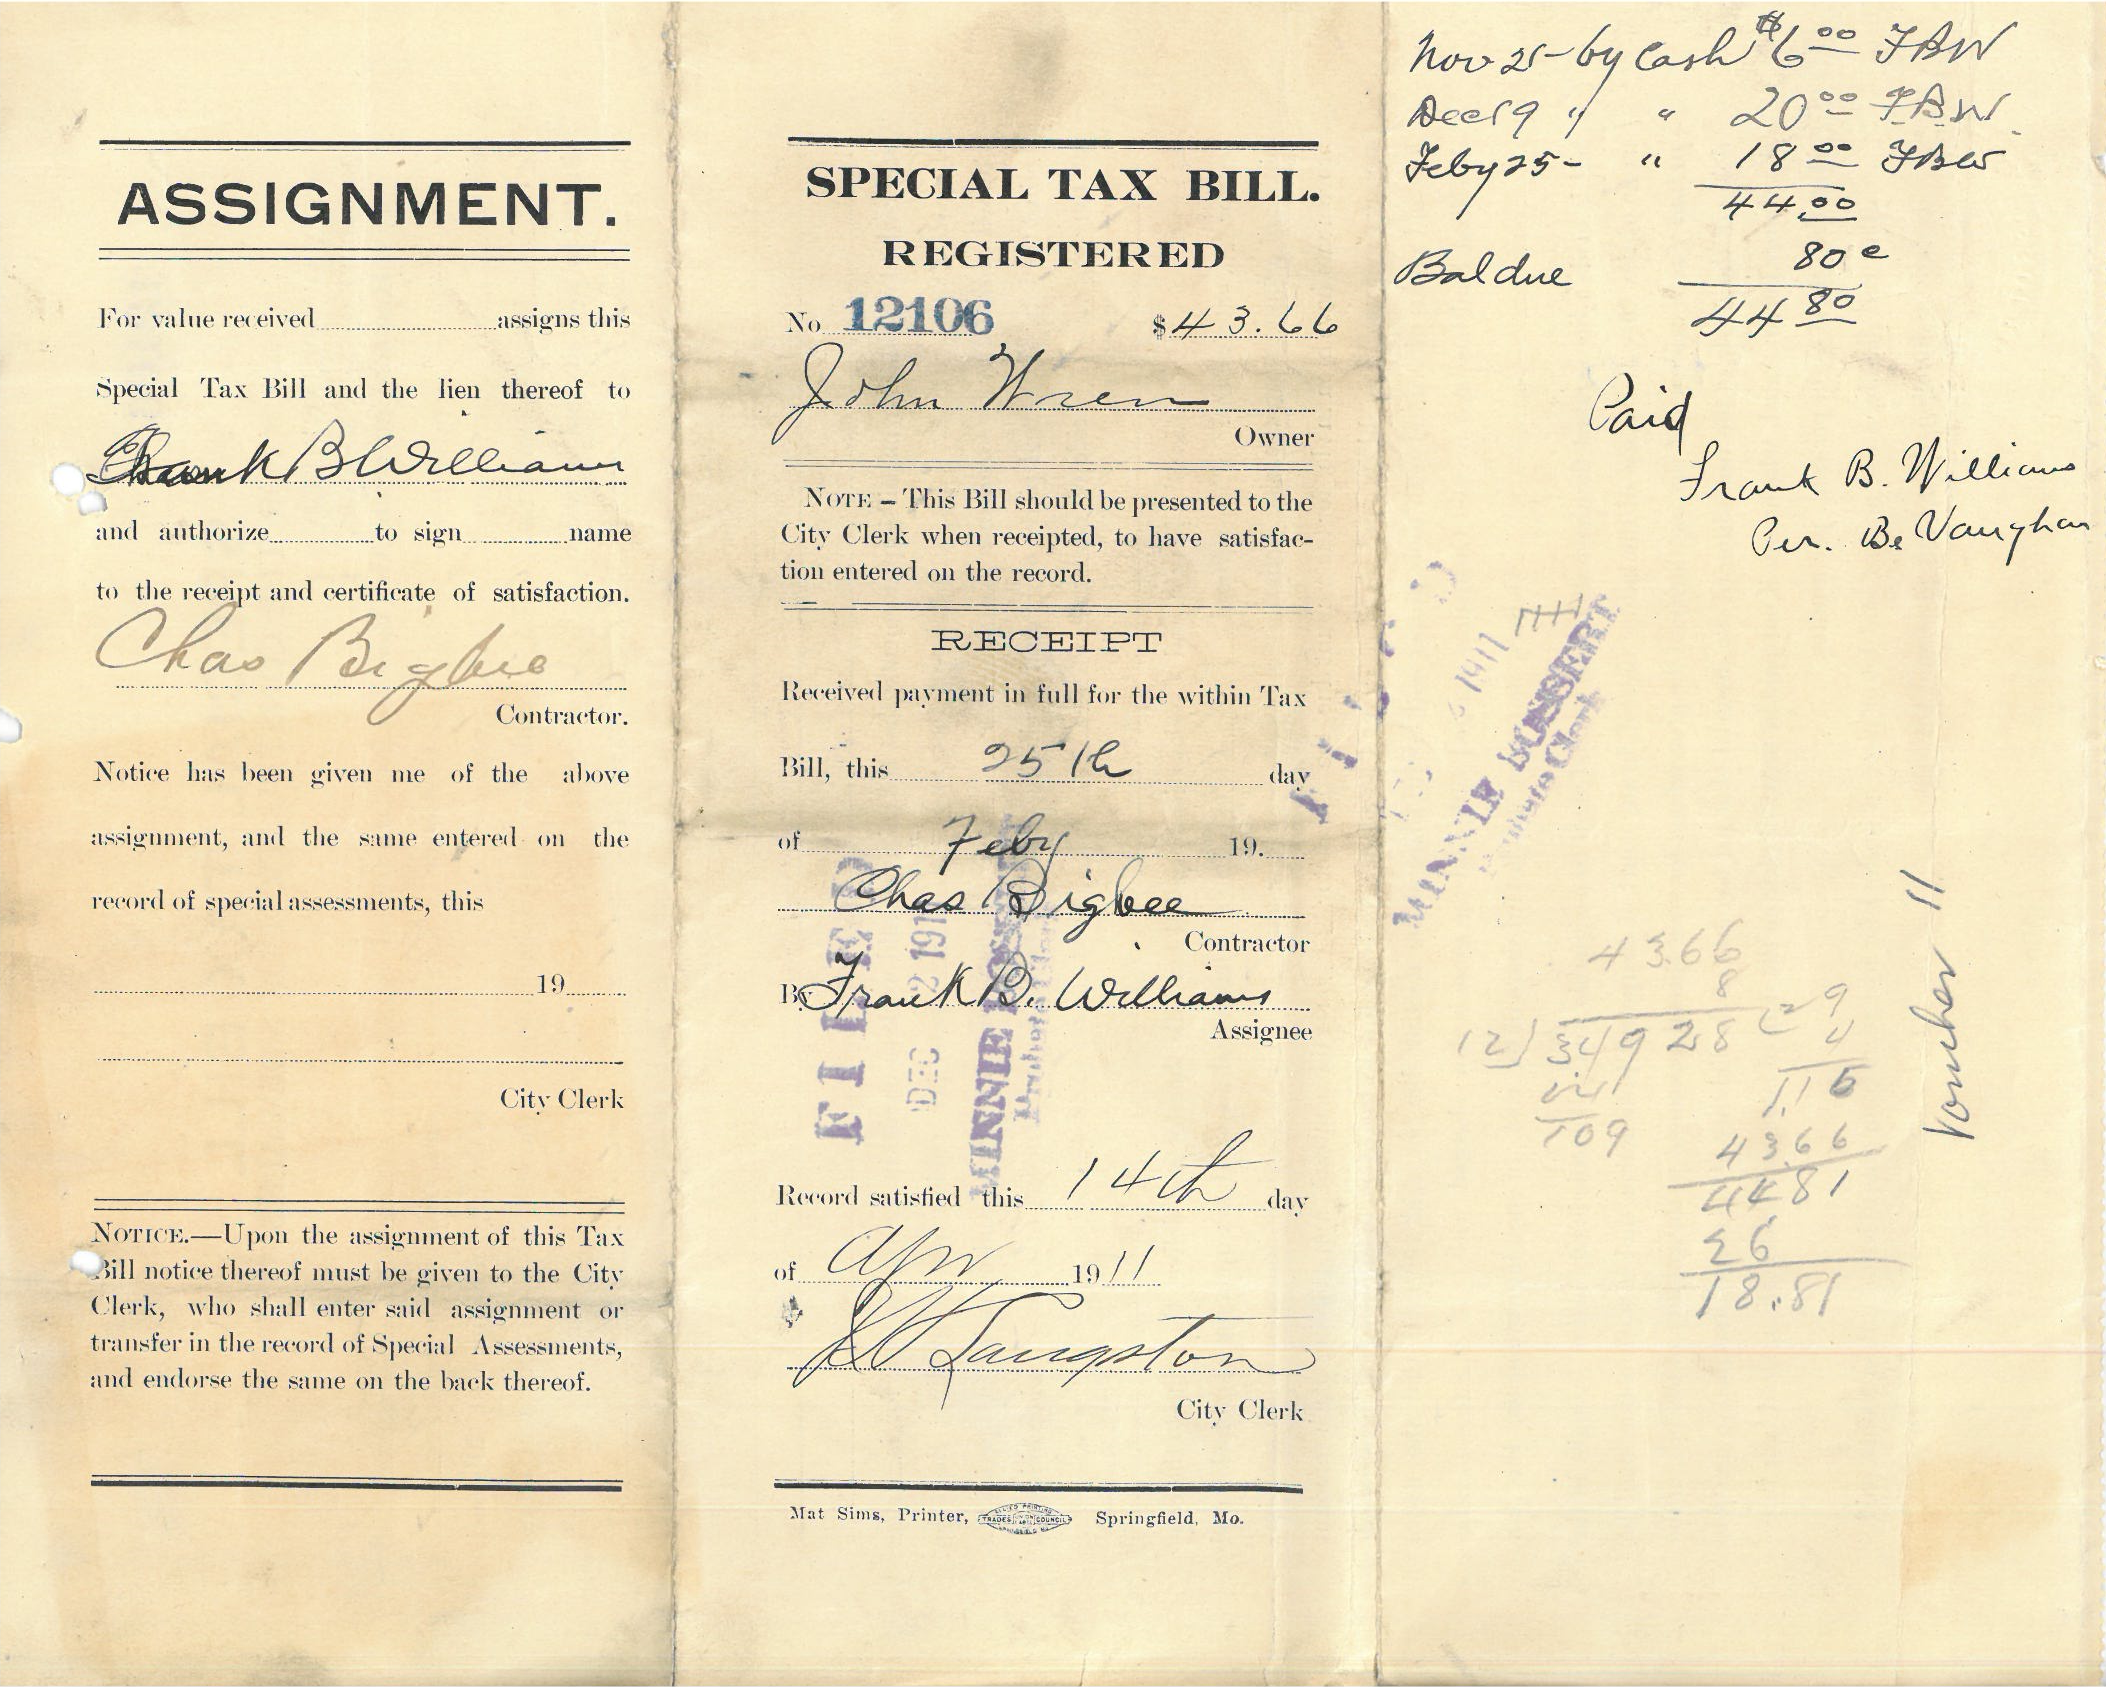 ASSIGNMENT.
For value received assigns this
Special Tax Bill and the lien thereof to
Frank B Williams
and authorize to sign name
to the receipt and certificate of satisfaction.
Chas Bigbee
Contractor.
Notice has been given me of the above
assignment, and the same entered on the
record of special assessments, this
19
City Clerk
NOTICE.—Upon the assignment of this Tax
Bill notice thereof must be given to the City
Clerk, who shall enter said assignment or
transfer in the record of Special Assessments,
and endorse the same on the back thereof.
SPECIAL TAX BILL.
REGISTERED
No 12106 $43.66
John Wren
Owner
NOTE – This Bill should be presented to the
City Clerk when receipted, to have satisfac-
tion entered on the record.
RECEIPT
Received payment in full for the within Tax
Bill, this 25th day
of Feby 19.
Chas Bigbee
Contractor
By Frank B. Williams
Assignee
FILED
DEC 2 191
MINNIE
Record satisfied this 14th day
of Apr 1911
Langston
City Clerk
Mat Sims, Printer, ALLIED PRINTING TRADES UNION COUNCIL Springfield, Mo.
Nov 25 - by Cash $6.00 FBW
Dec 19 " " 20.00 F.B.W.
Feby 25 - " 18.00 FBW
44.00
Bal due 80c
44 80
Paid
Frank B. Williams
Per. Be Vaughan
FILED
1911
MINNIE BOSSERT
Probate Clerk
Voucher 11
43.66
8
12) 349 28 (29
4
109
1.16
43.66
44 81
26
18.81